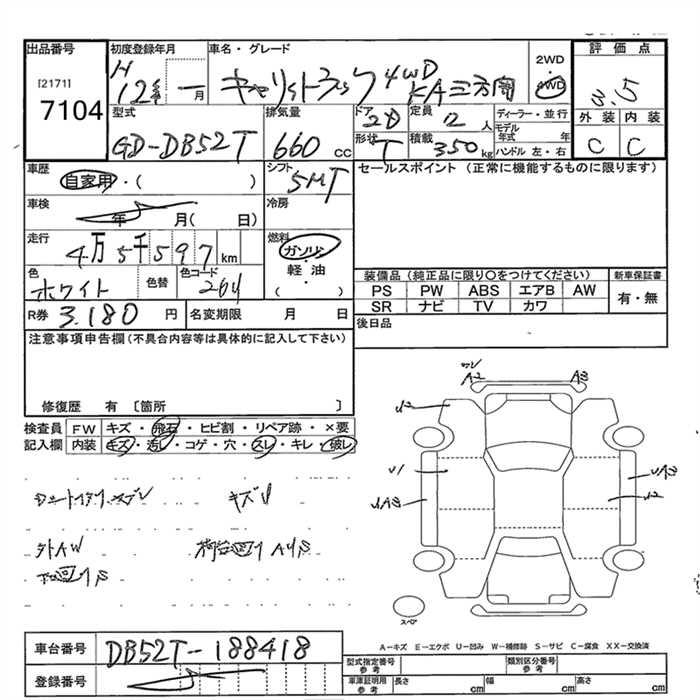 出品番号
[2171]
7104
初度登録年月
H 12年 一月
車名・グレード
キャリイトラック 4WD
KA三方開
2WD
4WD
評価点
3.5
外装 内装
C C
型式
GD-DB52T
排気量
660 cc
ドア
2D
形状
T
定員
2 人
積載
350 kg
ディーラー・並行
モデル年式 年
ハンドル 左・右
車歴
自家用・( )
シフト
5MT
セールスポイント (正常に機能するものに限ります)
車検
年 月( 日)
冷房
走行
4万5千597 km
燃料
ガソリン
・
軽油
( )
色
ホワイト
色替
色コード
26U
装備品(純正品に限り○をつけてください)
PS PW ABS エアB AW
SR ナビ TV カワ
新車保証書
有・無
R券 3.180 円
名変期限 月 日
後日品
注意事項申告欄(不具合内容等は具体的に記入して下さい)
修復歴 有 〔箇所 〕
検査員 FW キズ・飛石・ヒビ割・リペア跡・×要
記入欄 内装 キズ・汚レ・コゲ・穴・スレ・キレ・破レ
キズU
外AW
荷台回りAUS
下回りS
A2 A3
U2
U1
UA3
UA3
U2
スペア
A-キズ E-エクボ U-凹み W-補修跡 S-サビ C-腐食 XX-交換済
車台番号 DB52T-188418
登録番号
型式指定番号
参考
類別区分番号
参考
車庫証明用
参考
長さ cm 幅 cm 高さ cm